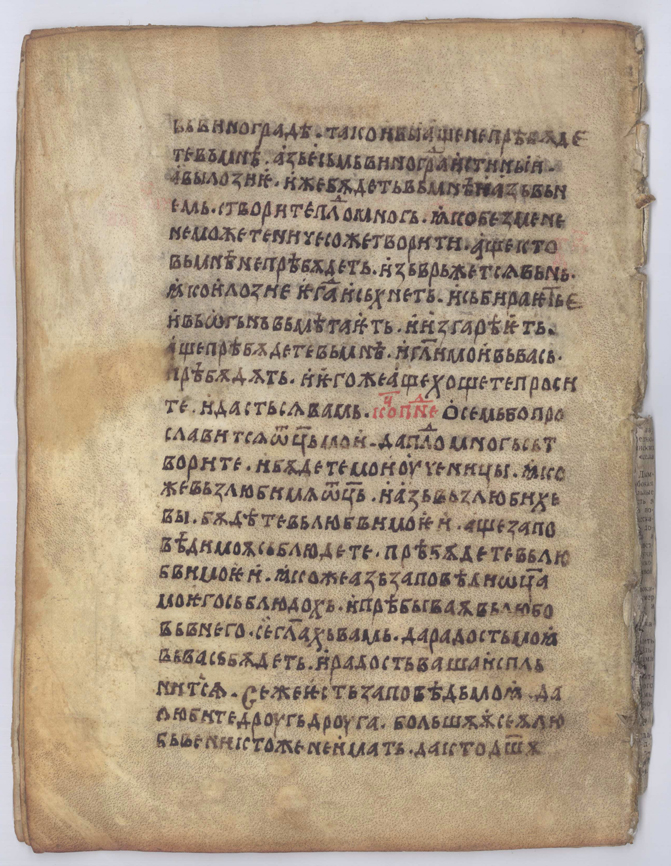 вьвиноградѣ · такоивыащенепрѣбѫде
тевьмнѣ · азьесьмьвиногра́дистиныи ·
авылозие · ижебѫдетьвьмнѣиазьвьн
емь · створитепло҃дмногь · ꙗкобезмене
неможетеничесожетворити · ащекто
вьмнѣнепрѣбѫдеть · изѣврьжетсѧвьнь ·
ꙗкоилозиеꙗ҃иисьхнеть · исьбираѭть е
ивьѡгньвьмѣтаѭть · иизгарѣѭть ·
ащепрѣбѫдетевьмнѣ · игл҃имоивьвась ·
прѣбѫдѫть · иѥгожеащехощетепроси
те · идастьсѧвамь · ко҃ч по҃не ѡсемьбопро
славитсѧѿц҃ьмои · дапло҃дмногьсьт
ворите · ибѫдетемоиоученици · ꙗко
жевьзлюбимѧѿц҃ь · иазьвьзлюбихь
вы · бѫдѣтевьлюбвимоѥи · ащезапо
вѣдимоѧсьблюдете · прѣбѫдетевьлю
бвимоѥи · ꙗкожеазьзаповѣдиѡц҃а
моѥгосьблюдохь · ипрѣбываѧвьлюбо
вьвнего · сегл҃ахьвамь · дарадостьмоꙗ
вьвасьбѫдеть · ирадостьвашаиспль
нитсѧ · сежеѥстьзаповѣдьмоꙗ · да
любитедроугьдроуга · большѫѫсеѧлю
бьвениктоженеимать · дактодш҃ѫ